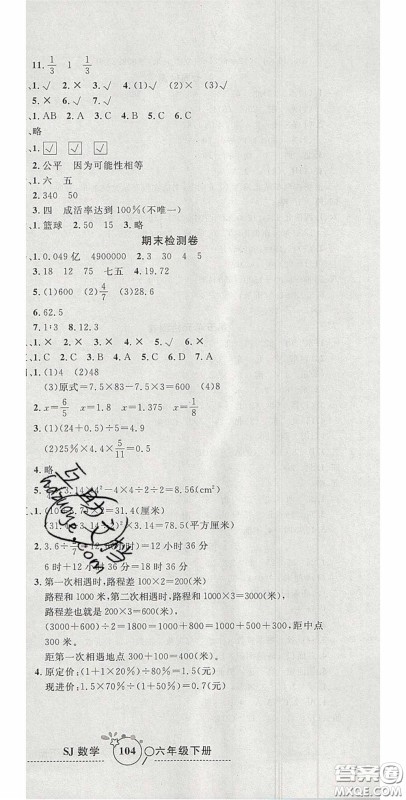 11. 1/3 1 1/3
、1.√ 2.× 3.× 4.(1)√ (2)× (3)√
5.× 6.√ 7.× 8.√
、1.AB 2.A 3.A 4.C 5.B 6.C 7.AC
、略
、1.☑ ☑ ☑
2.公平 因为可能性相等
、1.六 五
2.340 50
3.四 成活率达到100%(不唯一)
、1.篮球 2.50 15 3.略
期末检测卷
、1.0.049亿 4900000 2.3 30 4 5
3.18 12 75 七五 4.19.72
5.(1)600 (2)4/7 (3)200
6.62.5
7.1∶3 8.12.3
、1.√ 2.× 3.√ 4.× 5.×
、1.C 2.B 3.C 4.D 5.B 6.D 7.A
、1.(1)4 (2)48
(3)原式=7.5×83-7.5×3=600
2.x=6/5 x=1.8 x=1.375 x=1/8
3.(1)(24+0.5)÷5=4.9
(2)25%×4.4×5/11=0.5
4.略
5. 3.14× ²-4×4÷2÷2=8.56(cm²)
3.14×10=31.4(厘米)
3.14)²×3.14=78.5(平方厘米)
2.3.6÷ =12.6(小时)=12小时36分
6时+12小时36分=18时36分
3.第一次相遇时,路程差100×2=200(米)
路程和1000米,第二次相遇时,路程和1000×3=3000(米),
路程差也就是200×3=600(米),
(3000+600)÷2=1800=1000+800=1000+500+300,距中点
300米。
距第一次相遇地点300+100=400(米)
4.原定价:(1+20%)÷80%=1.5(元)
现进价:1.5×70%÷(1+50%)=0.7(元)
SJ数学 104 六年级下册
互助文档
hduzhe.com
答案圈
MXQE.COM